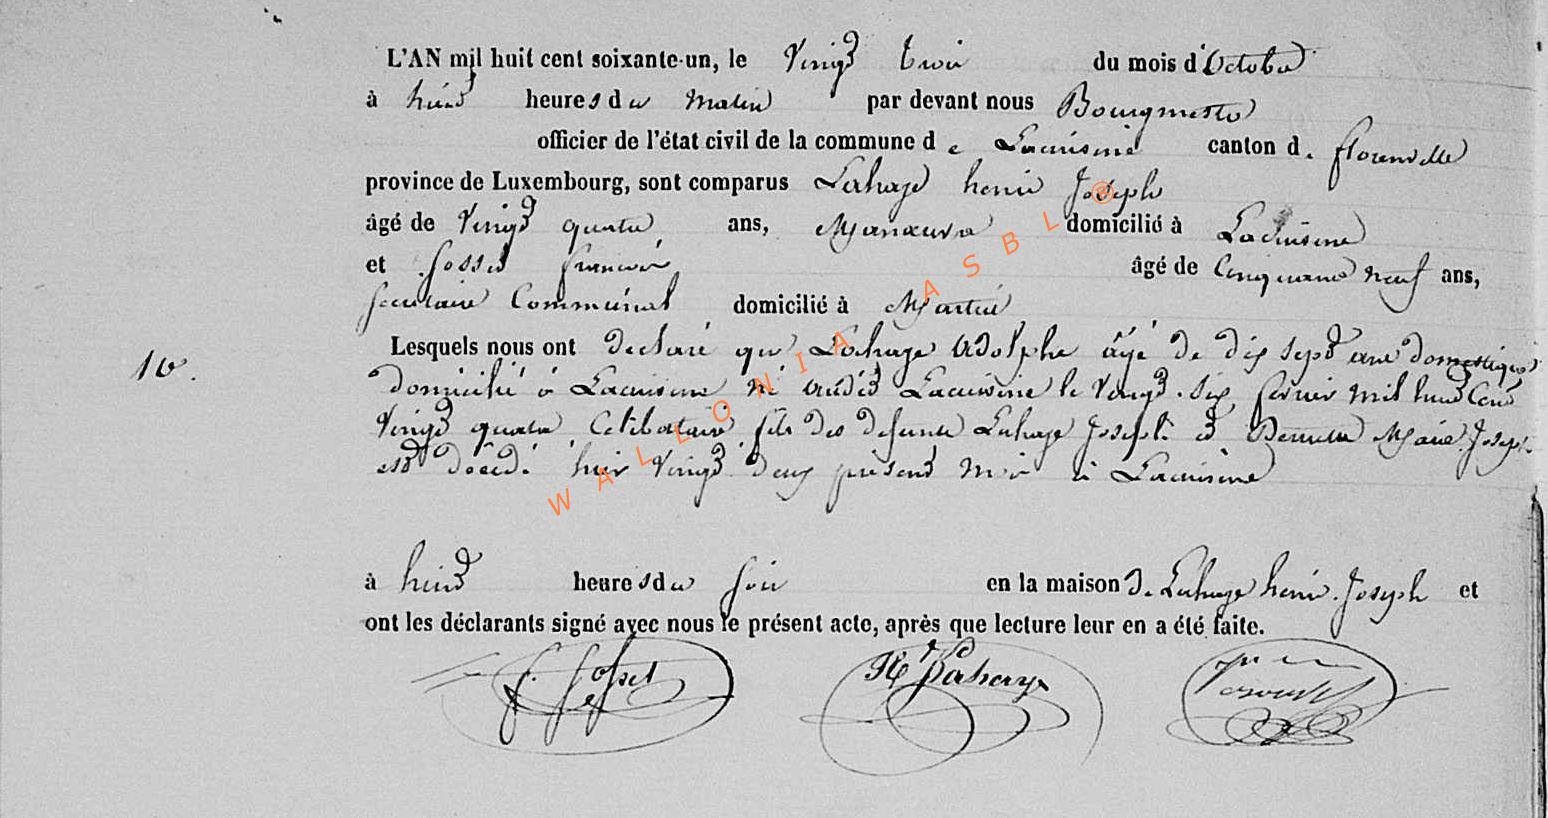 L'AN mil huit cent soixante-un, le Vingt trois du mois d'Octobre
à huit heures du Matin par devant nous Bourgmestre
officier de l'état civil de la commune de Lacuisine canton de florenville
province de Luxembourg, sont comparus Lahaye henri Joseph
âgé de Vingt quatre ans, Manœuvre domicilié à Lacuisine
et Gosset françois âgé de Cinquante neuf ans,
secrétaire Communal domicilié à Martué
10. Lesquels nous ont déclaré que Lahaye Adolphe âgé de dix sept ans domestique
domicilié à Lacuisine né audit Lacuisine le Vingt-six février mil huit Cent
Vingt quatre, Célibataire, fils des défunts Lahaye Joseph et Marie Joseph
est décédé hier Vingt deux présent mois à Lacuisine
à huit heures du soir en la maison de Lahaye henri Joseph et
ont les déclarants signé avec nous le présent acte, après que lecture leur en a été faite.
f. Gosset H Lahaye
WALLONIA ASBL ®